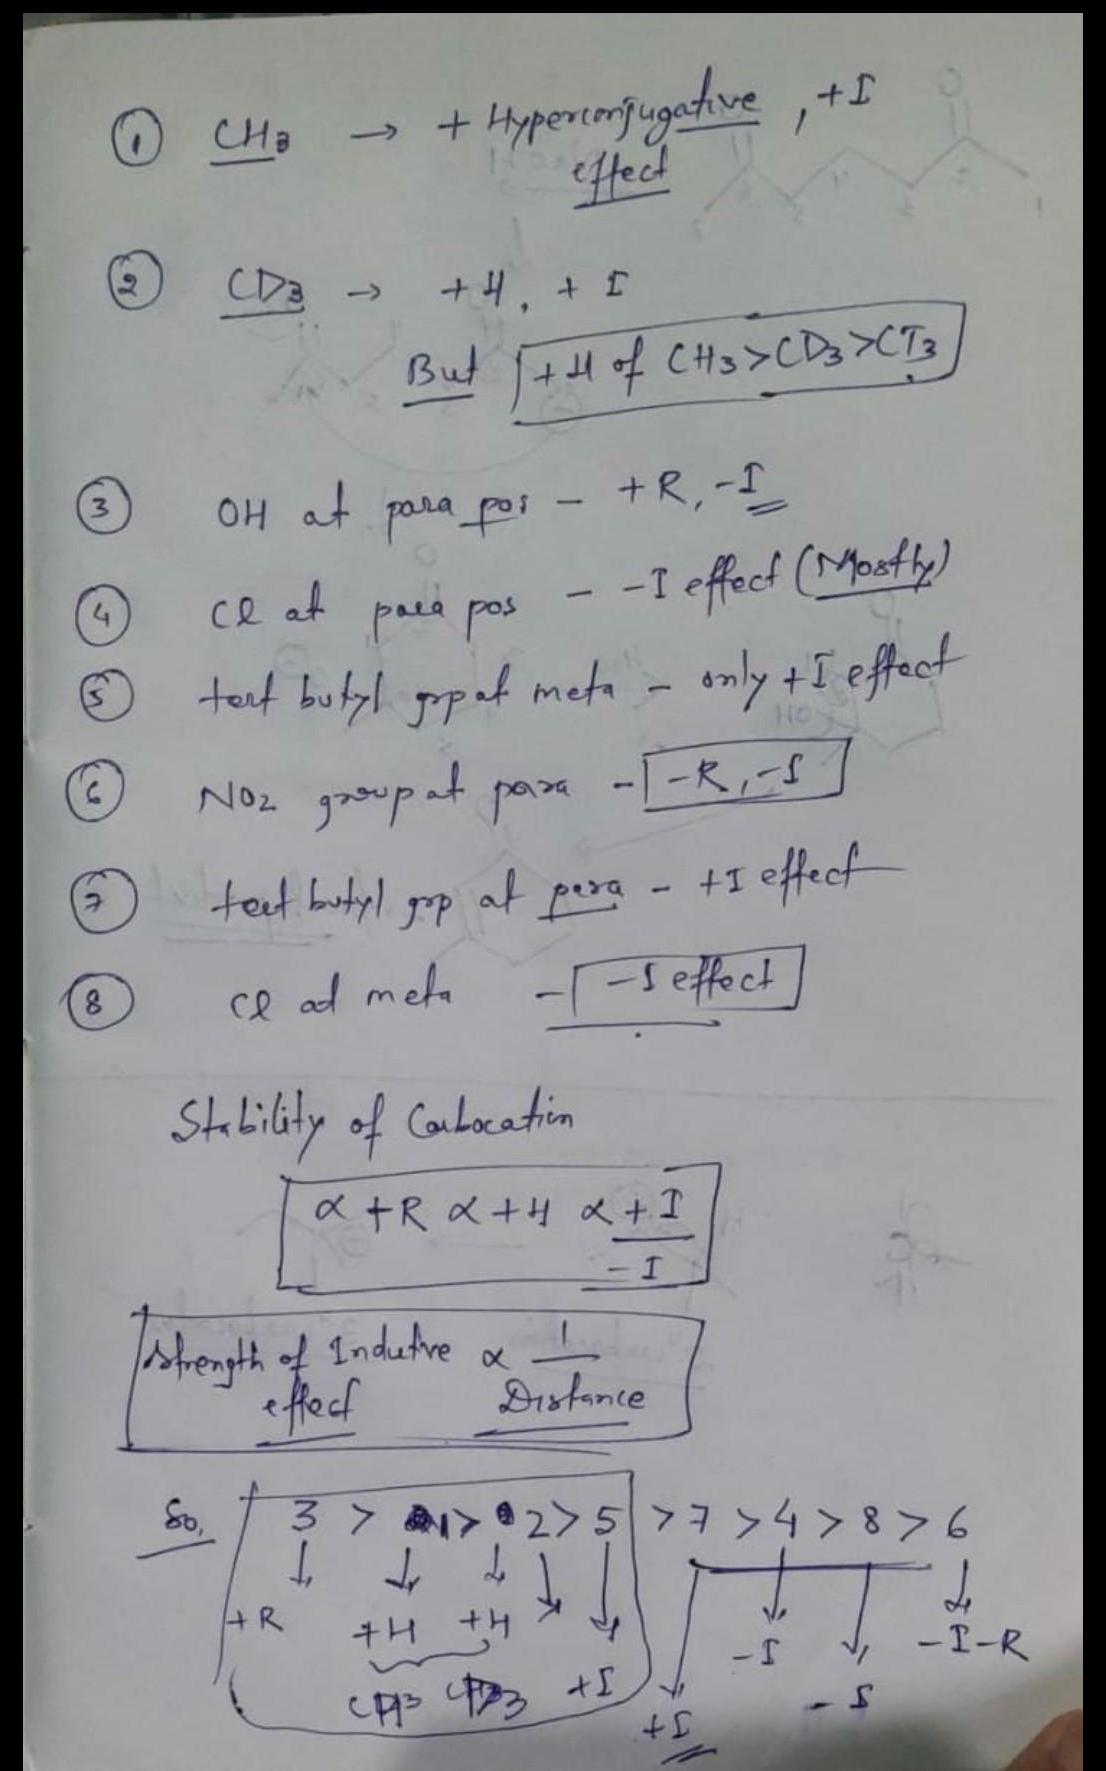 ① CH3 → + Hyperconjugative, +I
effect
② CD3 → +H, + I
But +H of CH3>CD3>CT3
③ OH at para pos - +R, -I
④ Cl at para pos - -I effect (Mostly)
⑤ tert butyl grp at meta - only +I effect
⑥ NO2 group at para - -R, -I
⑦ tert butyl grp at para - +I effect
⑧ Cl at meta - -I effect
Stability of Carbocation
α +R α +H α +I
-I
Strength of Indutive α 1
effect Distance
So, 3 > 1 > 2 > 5 > 7 > 4 > 8 > 6
+R +H +H -I -I-R
CH3 CD3 +I - I
+I